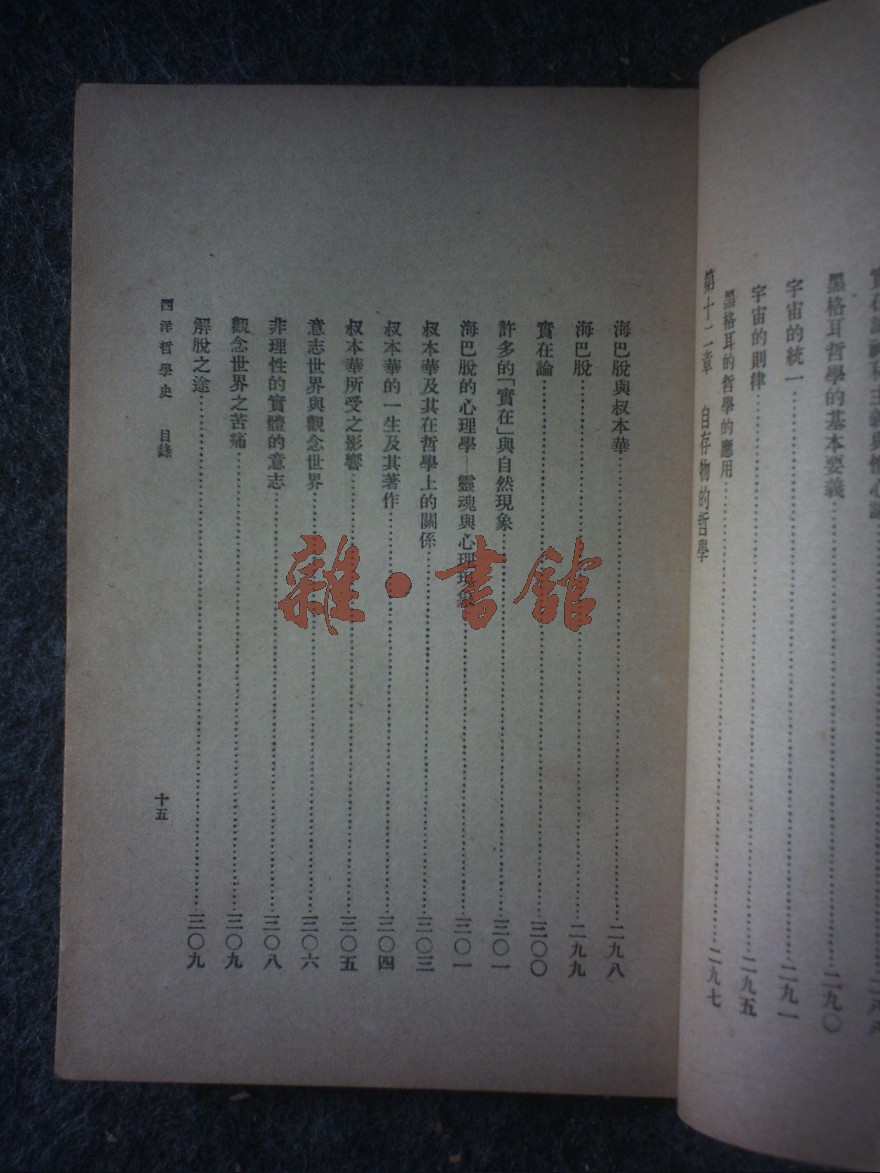 黑格耳哲學的基本要義……二九〇
宇宙的統一……二九一
宇宙的則律……二九五
黑格耳的哲學的應用……二九七
第十二章 自存物的哲學
海巴脫與叔本華……二九八
海巴脫……二九九
實在論……三〇〇
許多的「實在」與自然現象……三〇一
海巴脫的心理學—靈魂與心理現象……三〇一
叔本華及其在哲學上的關係……三〇三
叔本華的一生及其著作……三〇四
叔本華所受之影響……三〇五
意志世界與觀念世界……三〇六
非理性的實體的意志……三〇八
觀念世界之苦痛……三〇九
解脫之途……三〇九
西洋哲學史 目錄 十五
雜·書館